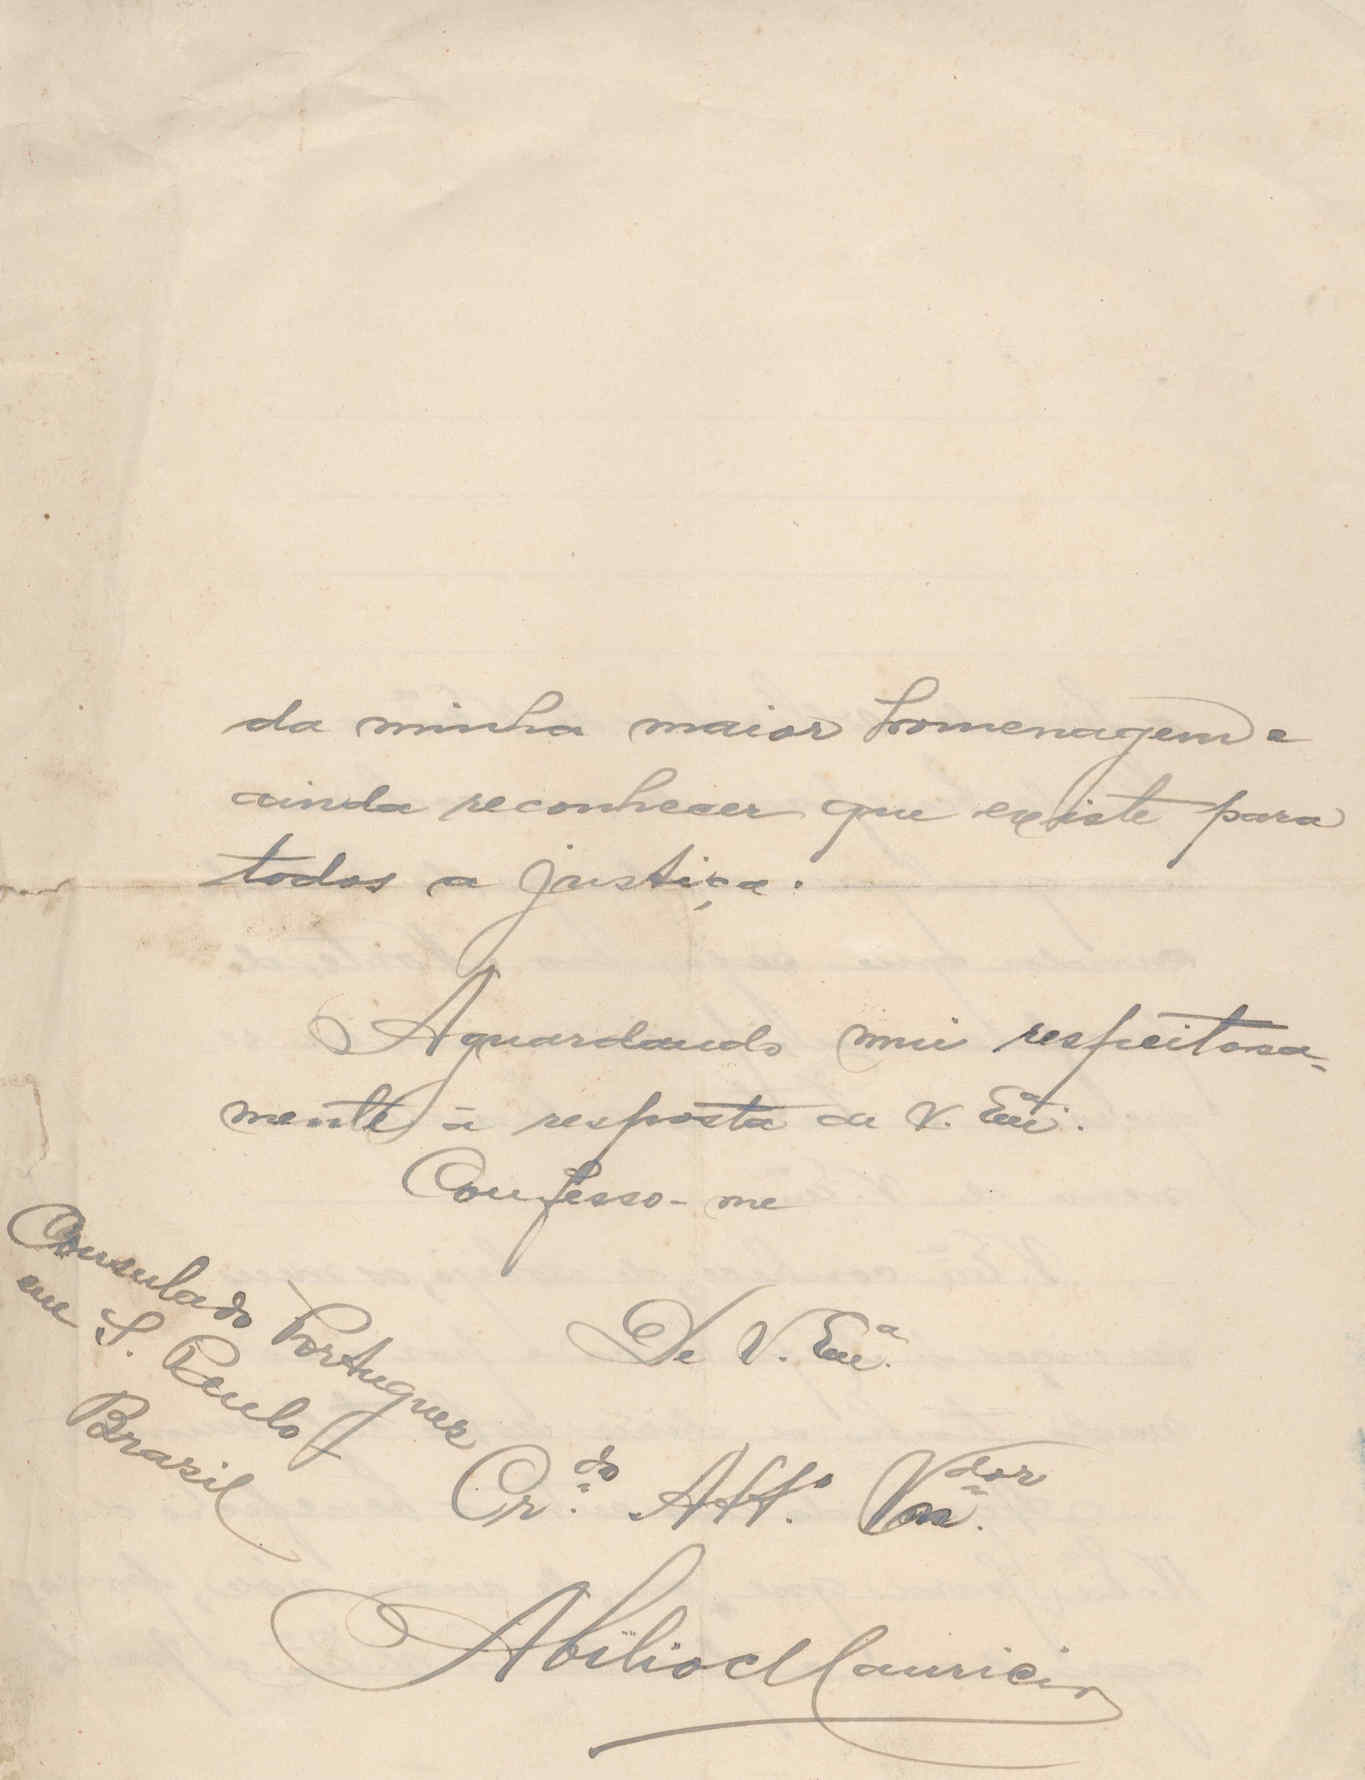 da minha maior homenagem e
ainda reconhecer que existe para
todos a justiça.
Aguardando mui respeitosa-
mente a resposta de V. Exª.
Confesso-me
De V. Exª.
Cr.do Att.o Vn.dor
Abilio Mauricio
Consulado Portuguez
em S. Paulo
Brasil